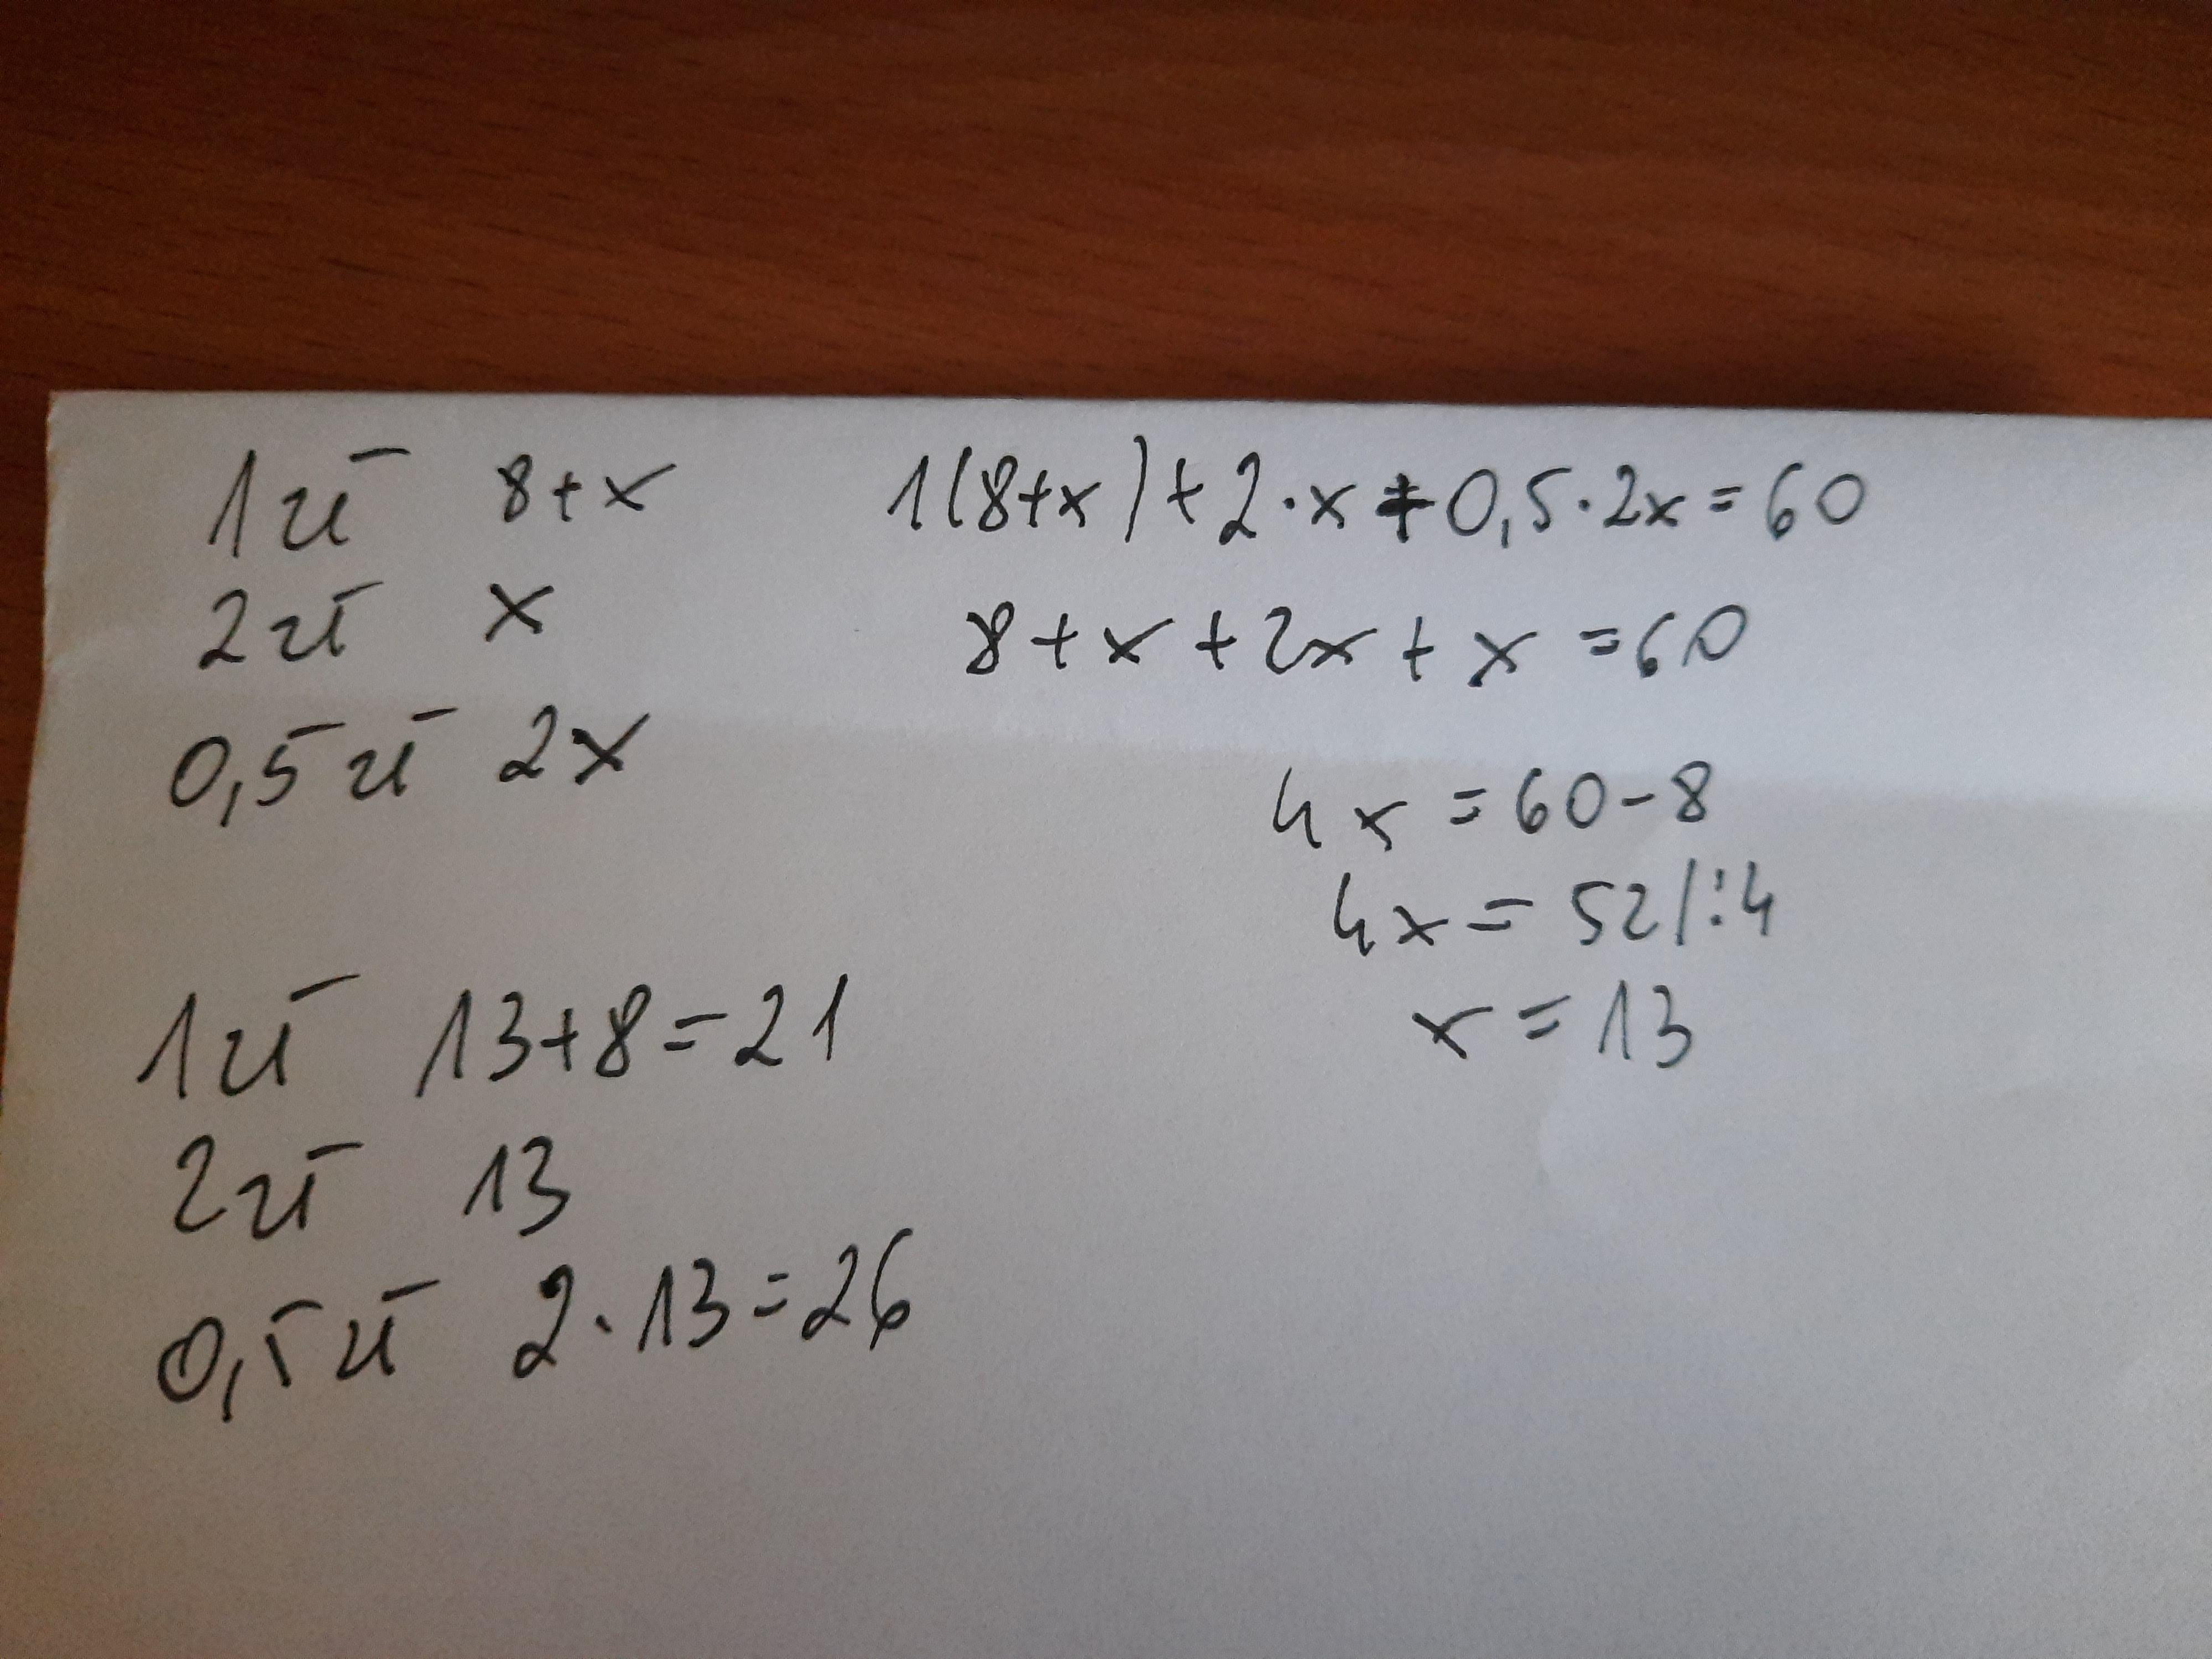 1zł 8+x 1(8+x)+2·x+0,5·2x=60
2zł x 8+x+2x+x=60
0,5zł 2x
4x=60-8
4x=52/:4
1zł 13+8=21 x=13
2zł 13
0,5zł 2·13=26